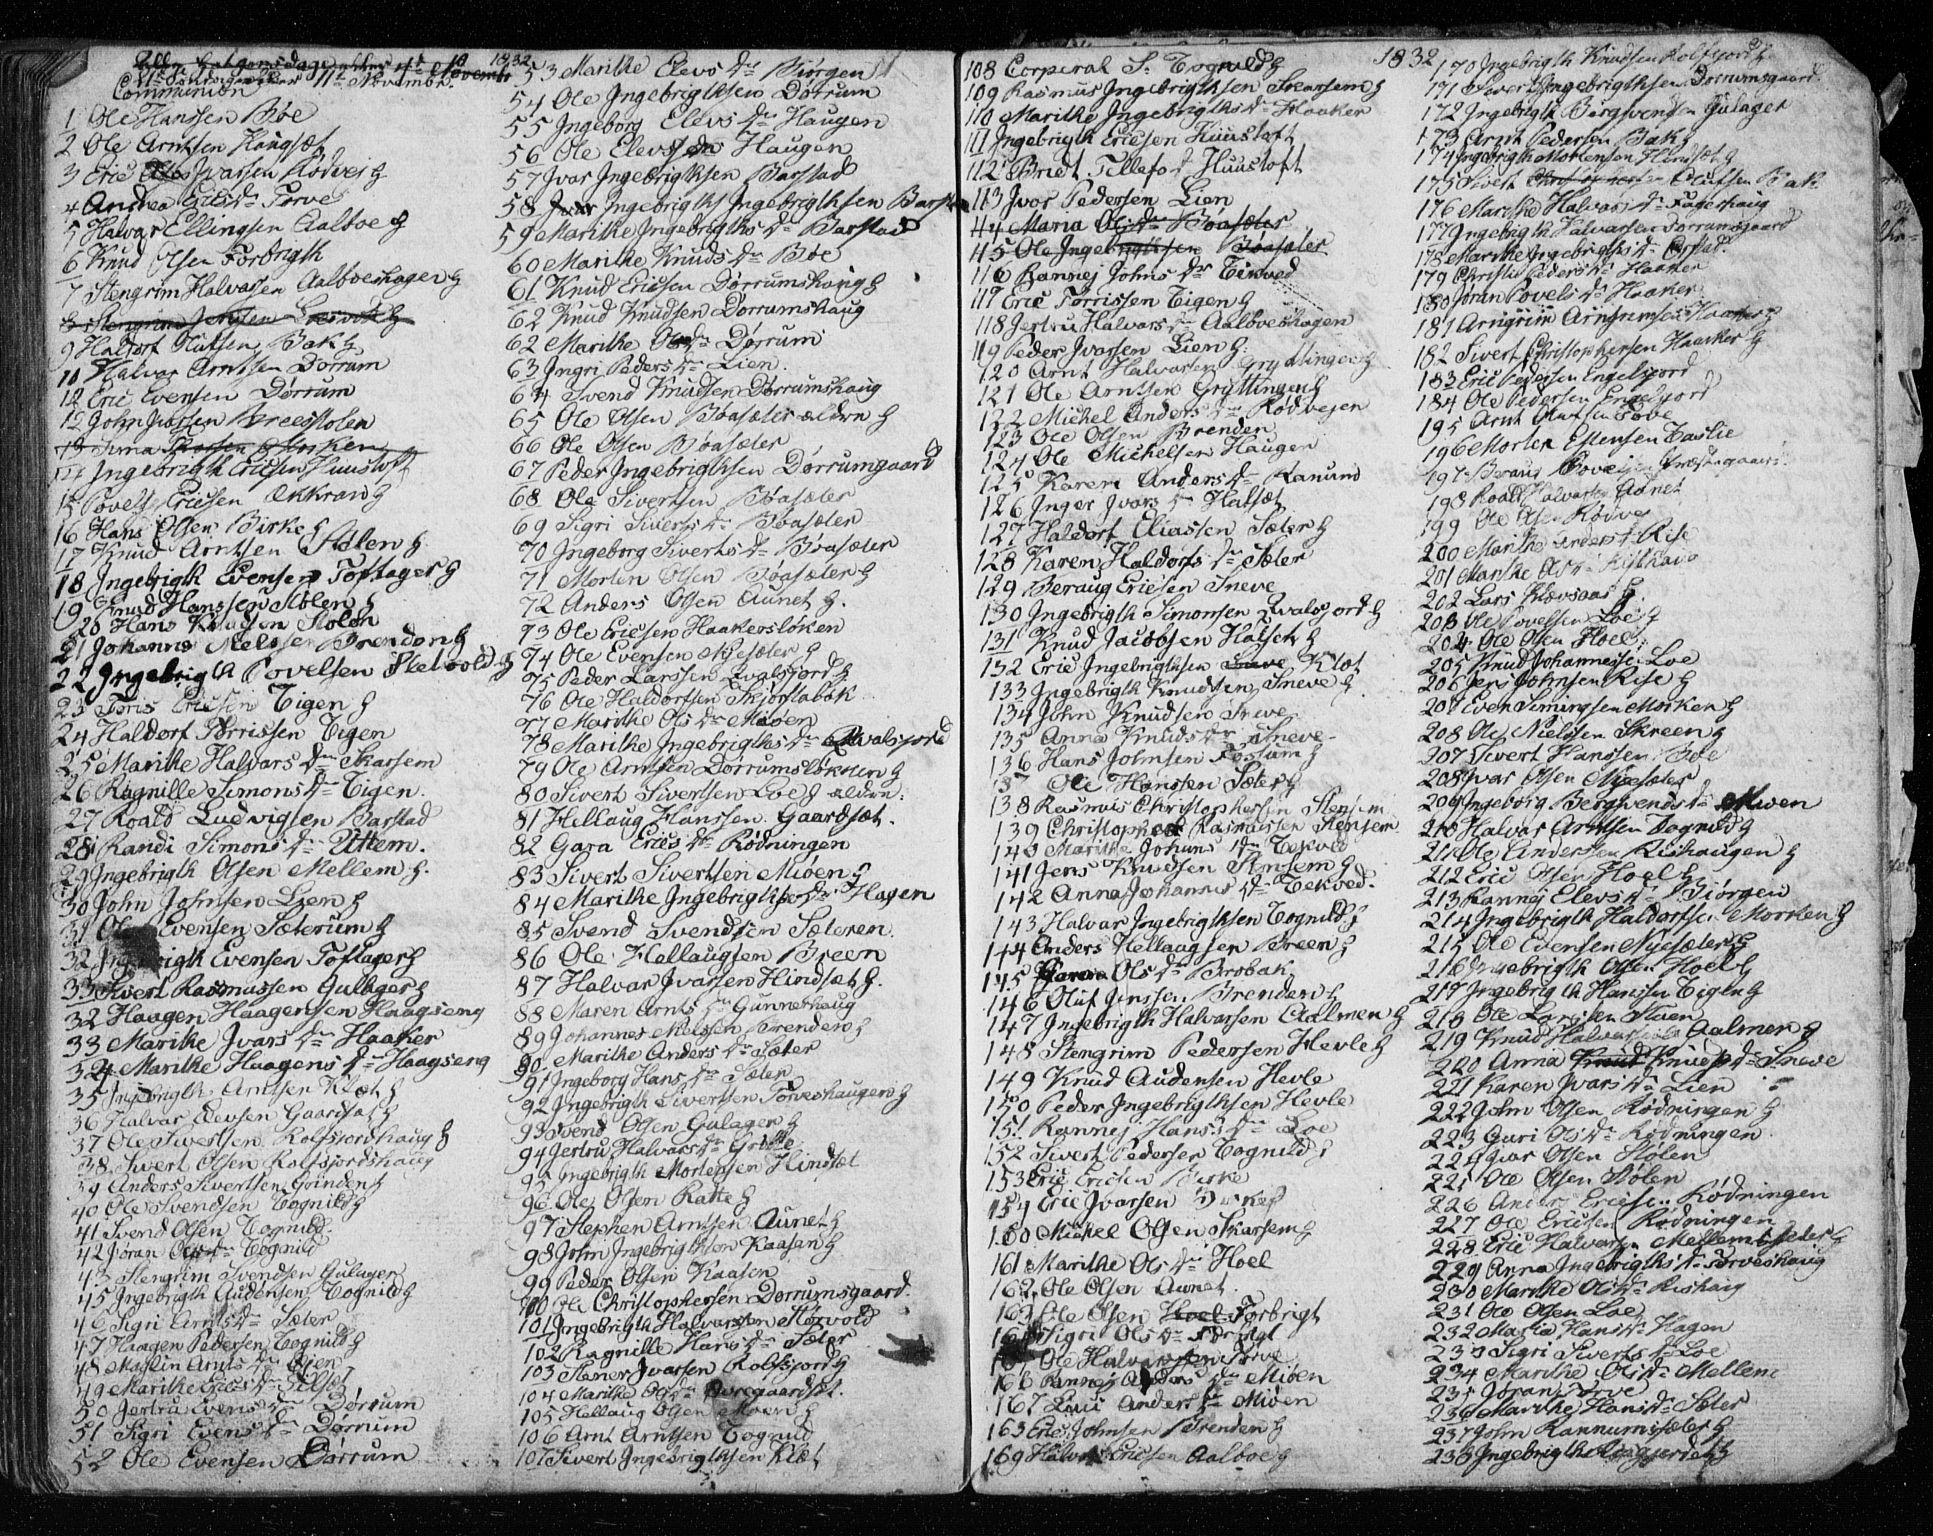 1832
Communion 11te Novembr.
1 Ole Hanssen Bøe
2 Ole Arntsen
3 Eric Ivarsen Rødvei
4 Andrea Erics Dr Torve
5 Halvar Ellingsen Aalboe G
6 Knud Olsen Forbrigth
7 Stengrim Halvarsen Aalboeshagen G
8 Stengrim Jensen
9 Haldorf Olufsen Bak G
10 Halvar Arntsen Dørrum
12 Eric Evensen Dørrum
12 John Breesstolen
13
14 Ingebrigth Ericsen Huustoft
15 Povel Ericsen Ekkran G
16 Hans Olsen Birke G
17 Knud Arntsen Stølen G
18 Ingebrigth Evensen Toftager G
19 Knud Hanssen Stølen G
20 Hans Knudsen Stølen
21 Johannes Nielssen Brenden G
22 Ingebrigth Povelsen Skeivold G
23 Toris Ericsen Tigen G
24 Haldorf Torrissen Tigen
25 Marithe Halvars Dr Skarsem
26 Ragnille Simons Dr Tigen.
27 Roald Ludvigsen Barstad
28 Randi Simons Dr Uttem.
29 Ingebrigth Olsen Mellem G.
30 John Johnsen Lien G
31 Ole Evensen Sæterium G
32 Ingebrigth Evensen Toftager G
33 Sivert Rasmussen Gulager G
32 Haagen Haagensen Haagseng
33 Marithe Ivars Dr Haaker
34 Marithe Haagens Dr Haagseng
35 Ingebrigth Arntsen Klæt G
36 Halvar Elevsen Gaardsæt G
37 Ole Sivertsen Rolfsjordshaug G
38 Sivert Olsen Rolfsjordshaug
39 Anders Sivertsen Grinden G
40 Ole Svendsen Tognild G
41 Svend Olsen Tognild.
42 Jøran Ols Dr Tognild
43 Stengrim Svendsen Gulager
45 Ingebrigth Audensen Tognild G
46 Sigri Arnts Dr Sæter
47 Haagen Pedersen Tognild G
48 Marlin Arnts Dr
49 Marithe Erics Dr
50 Jertru Evens Dr Dørrum
51 Sigri Evens Dr Dørrum
52 Ole Evensen Dørrum
53 Marithe Elevs Dr Biørgen
54 Ole Ingebrigthsen Dørrum
55 Ingeborg Elevs Dr Haugen
56 Ole Elevsen Haugen
57 Ivar Ingebrigthsen Barstad
58 Ingebrigth Ingebrigthsen Barstad
59 Marithe Ingebrigths Dr Barstad
60 Marithe Knuds Dr Bøe
61 Knud Ericsen Dørrumshaug G
62 Knud Knudsen Dørrumshaug
62 Marithe Ols Dr Dørrum
63 Ingri Peders Dr Lien.
64 Svend Knudsen Dørrumshaug
65 Ole Olsen Bøasæter ældre G
66 Ole Olsen Bøasæter
67 Peder Ingebrigthsen Dørrumgaard
68 Ole Sivertsen Bøasæter
69 Sigri Siverts Dr Bøasæter
70 Ingeborg Siverts Dr Bøasæter
71 Morten Olsen Bøasæter G
72 Anders Olsen Aunet G.
73 Ole Ericsen Haakersløken
74 Ole Evensen Nyesæter G
75 Peder Larssen Qvalsjord G
76 Ole Haldorfsen Skjørstabak
77 Marithe Ols Dr Mioen
78 Marithe Ingebrigths Dr Qvalsjord
79 Ole Arntsen Dørrumsløkken G
80 Sivert Sivertsen Loe G ældre.
81 Hellaug Hanssen Gaardsæt.
82 Gara Erics Dr Rødningen
83 Sivert Sivertsen Mioen G
84 Marithe Ingebrigths Dr Hagen
85 Svend Svendsen Sæteren.
86 Ole Hellaugsen Breen
87 Halvar Ivarsen Hindsæt G.
88 Maren Arnts Dr Gunneshaug
89 Johannes Nielssen Brenden G
90 Marithe Anders Dr Sæter
91 Ingeborg Hans Dr Sæter
92 Ingebrigth Sivertsen Torveshaugen G
93 Svend Olsen Gulager G
94 Jertru Halvars Dr
95 Ingebrigth Mortensen Hindsæt
96 Ole Olsen Ratte G
97 Stephen Arntsen Aunet G
98 John Ingebrigthsen Kaasan G
99 Peder Olsen Kaasen
100 Ole Christophersen Dørrumsgaard.
101 Ingebrigth Halvarssen Størvold
102 Ragnille Hans Dr Sæter
103 Stener Ivarsen Rolfsjord G
104 Marithe Ols Dr
105 Hellaug Olsen Moen G
106 Arnt Arntsen Tognild
107 Sivert Ingebrigthsen Klæt
1832
108 Corporal S. Tognild G
109 Rasmus Ingebrigthsen Skarsem G
110 Marithe Ingebrigths Dr Haaker
111 Ingebrigth Ericsen Huustoft
112 Brit Tillefs Dr Huustoft
113 Ivor Pedersen Lien
44 Maria Ols Dr Bøasæter
45 Ole Ingebrigthsen Bøasæter
116 Rannej Johns Dr Tekved
117 Eric Torrissen Tigen G
118 Jertru Halvars Dr Aalboeshagen
119 Peder Ivarsen Lien G.
120 Arnt Halvarsen Gryttingen G
121 Ole Arntsen Gryttingen G
122 Michel Anders Dr Rødvejen
123 Ole Olsen Brenden
124 Ole Michelsen Haugen
125 Karen Anders Dr Ranund
126 Inger Ivars Dr Halsæt
127 Haldorf Eliassen Sæter G
128 Karen Haldorfs Dr Sæter
129 Beraug Ericsen Sneve
130 Ingebrigth Simonsen Qvalsjord G
131 Knud Jacobsen Halset G
132 Eric Ingebrigthsen Sneve Klæt
133 Ingebrigth Knudsen Sneve G
134 John Knudsen Sneve
135 Anna Knuds Dr Sneve
136 Hans Johnsen Tostum G
137 Ole Hanssen Sæter G
138 Rasmus Christophersen Stensem
139 Christopher Rasmussen Stensem
140 Marithe Johans Dr Tekved
141 Jens Knudsen Stensem G
142 Anna Johannes Dr Tekved.
143 Halvar Ingebrigthsen Tognild G
144 Anders Hellaugsen Breen G
145 Ols Dr Brobak
146 Oluf Jenssen Brenden G
147 Ingebrigth Halvarsen Aalmen G
148 Stengrim Pedersen Hevle G
149 Knud Audensen Hevle
150 Peder Ingebrigthsen Hevle
151 Rannej Hans Dr Loe
152 Sivert Pedersen Tognild G
153 Eric Ericsen Birke
154 Eric Ivarsen
160 Mickel Olsen Skarsem G
161 Marithe Ols Dr Hoel
162 Ole Olsen Aunet
163 Ole Olsen Hoel Forbrigt
164 Sigri Ols Dr Forbrigt
167 Ole Halvarsen Torve
166 Rannej Anders Dr Mioen
167 Anders Dr Mioen
163 Eric Johnsen Brenden G
169 Halvar Ericsen Aalboe G
170 Ingebrigth Knudsen Rolfsjord G
171 Sivert Ingebrigthsen Dørrumsgaard
172 Ingebrigth Bergsvendsen Gulager
173 Arnt Pedersen Bak G
174 Ingebrigth Mortensen Hindsæt G
175 Sivert Olufsen Bak
176 Marithe Halvars Dr Fagerhaug
177 Ingebrigth Halvarsen Dørrumsgaard
178 Marithe Ingebrigths Dr
179 Christi Peders Dr Haaker
180 Jøran Povels Dr Haaker
181 Arngrim Arngrimsen Haaker G
182 Sivert Christophersen Haaker G
183 Eric Pedersen Engelsjord
184 Ole Pedersen Engelsjord
195 Arnt Olufsen Torve
196 Morten Estensen Taslie
197 Beraug Povelsen
198 Roald Halvarsen Aunet
199 Ole Olsen Rødve
200 Marithe Anders Dr Rise
201 Marithe Ols Dr
202 Lars Klevsaas G.
203 Ole Povelsen Loe G
204 Ole Olsen Hoel
205 Knud Johannessen Loe
206 Jens Johnsen Rise G
207 Even Semingsen Morken G
208 Ole Nielsen Skreen G
207 Sivert Hanssen Bøe
208 Ivar Olsen Nyesæter
209 Ingeborg Bergsvends Dr Mioen
210 Halvar Arntsen Tognild G
211 Ole Anderssen Rishaugen G
212 Eric Olsen Hoel G
213 Rannej Elevs Dr Biørgen
214 Ingebrigth Haldorfsen Morken G
215 Ole Evensen Nyesæter G
216 Ingebrigth Olsen Hoel G
217 Ingebrigth Hanssen Tigen G
218 Ole Larssen
219 Knud Halvarsen Aalmen G
220 Anna Knuds Dr Sneve
221 Karen Ivars Dr Lien
222 John Olsen Rødningen G
223 Guri Ols Dr Rødningen
224 Ivar Olsen Stølen
225 Ole Olsen Stølen
226 Anders Ericsen Rødningen
227 Ole Ericsen Rødningen
228 Eric Halvarsen Mellemsæter G
229 Anna Ingebrigths Dr Torveshaug
230 Marithe Ols Dr Rishaug
231 Ole Olsen Loe
232 Maria Hans Dr Hagen
233 Sigri Siverts Dr Loe
234 Marithe Ols Dr Mellem
235 Jøran Torve
236 Marithe Hans Dr Sæter
237 John Rannumsæter G
238 Ingebrigth